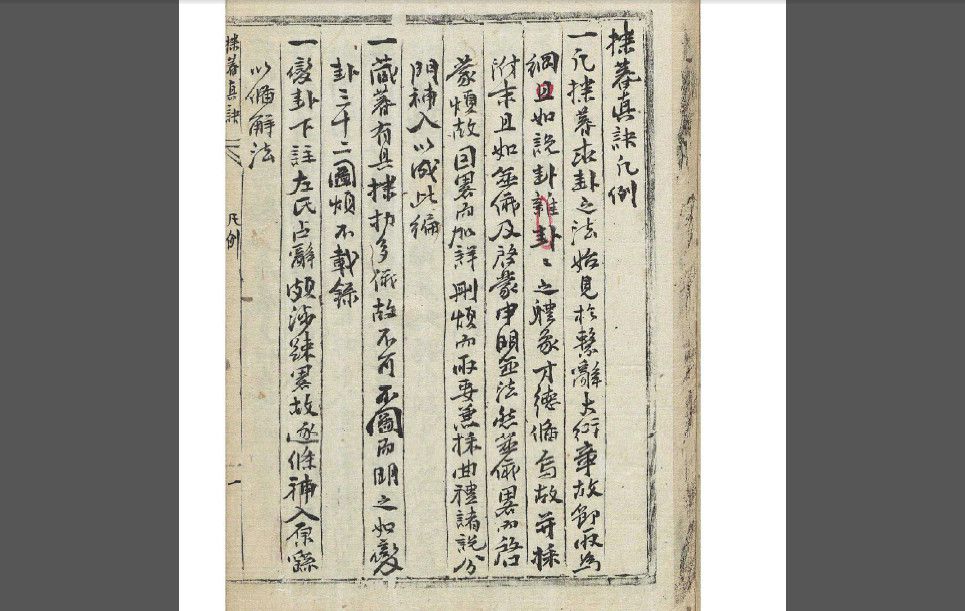 揲蓍真訣凡例
一凡揲蓍求卦之法始見於繫辭大衍章故節取為
綱且如說卦雜卦〻之軆象才德俻焉故并採
附末且如筮儀及啓蒙申明筮法然筮儀畧而啓
蒙煩故因畧而加詳刪煩而取要兼採曲禮諸說分
門補入以成此編
一蔵蓍有具揲扐多儀故不可不圖而明之如變
卦三十二圖煩不載錄
一變卦下註左氏占辭頗涉踈畧故逐條補入原繇
以俻解法
揲蓍真訣 凡例 一